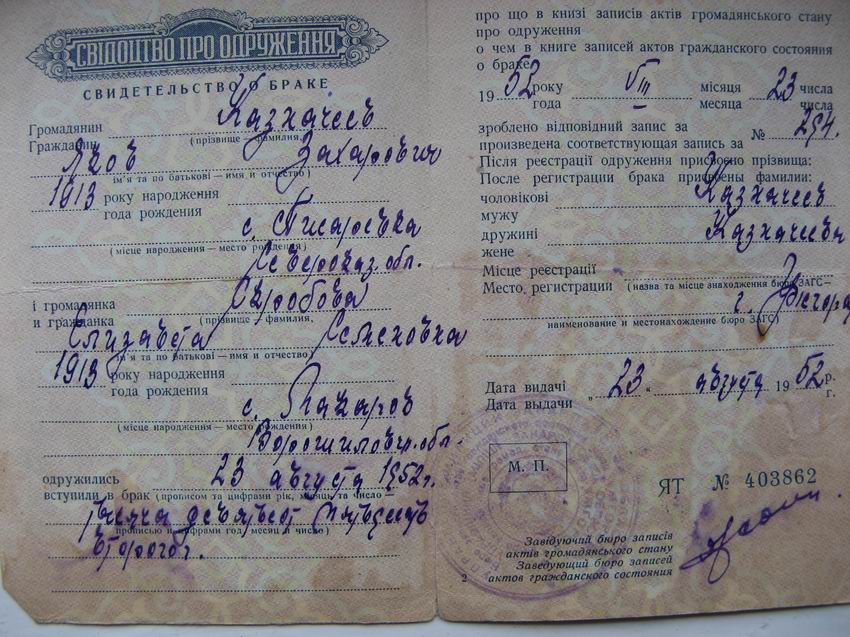 СВІДОЦТВО ПРО ОДРУЖЕННЯ
СВИДЕТЕЛЬСТВО О БРАКЕ
Громадянин Казначеев
Гражданин (прізвище — фамилия,
Яков Захарович
ім'я та по батькові — имя и отчество)
1913 року народження
года рождения
с. Писаревка
(місце народження — место рождения)
Северо-каз. обл.
і громадянка
и гражданка (прізвище — фамилия,
Елизавета Семеновна
ім'я та по батькові — имя и отчество)
1913 року народження
года рождения
с. Макаров
(місце народження — место рождения)
Ворошиловгр. обл.
одружились 23 августа 1952г.
вступили в брак (прописом та цифрами рік, місяць та число —
тысяча девятьсот пятьдесят
прописью и цифрами год, месяц и число)
второго г.
про що в книзі записів актів громадянського стану
про одруження
о чем в книге записей актов гражданского состояния
о браке
1952 року VIII місяця 23 числа
года месяца числа
зроблено відповідний запис за
произведена соответствующая запись за № 254.
Після реєстрації одруження присвоєно прізвища:
После регистрации брака присвоены фамилии:
чоловікові Казначеев
мужу
дружині Казначеева
жене
Місце реєстрації
Место регистрации (назва та місце знаходження бюро ЗАГС—
г.
наименование и местонахождение бюро ЗАГС)
Дата видачі „ 23 " августа 1952 р.
Дата выдачи г.
М. П.
ЯТ № 403862
Завідуючий бюро записів
актів громадянського стану
Заведующий бюро записей
2 актов гражданского состояния